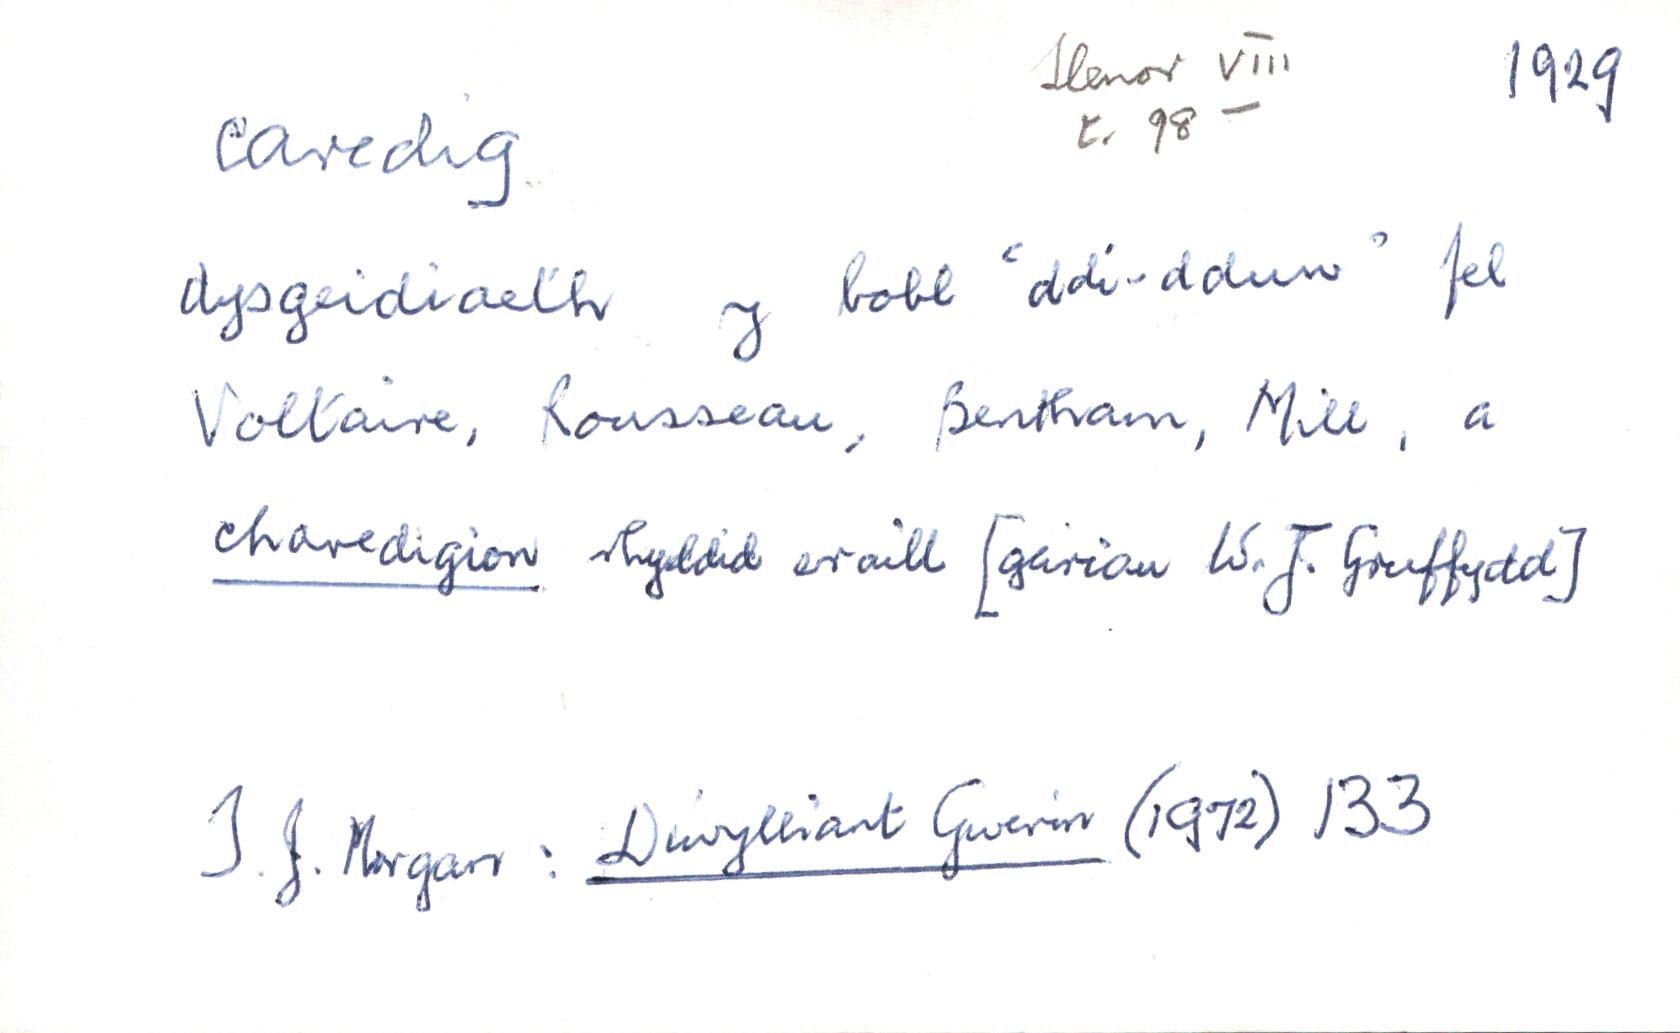 Llenor VIII 1929
t. 98
caredig
dysgeidiaeth y bobl "ddi-dduw" fel
Voltaire, Rousseau, Bentham, Mill, a
charedigion rhyddid eraill [geiriau W.J. Gruffydd]
T.J. Morgan: Diwylliant Gwerin (1972) 133